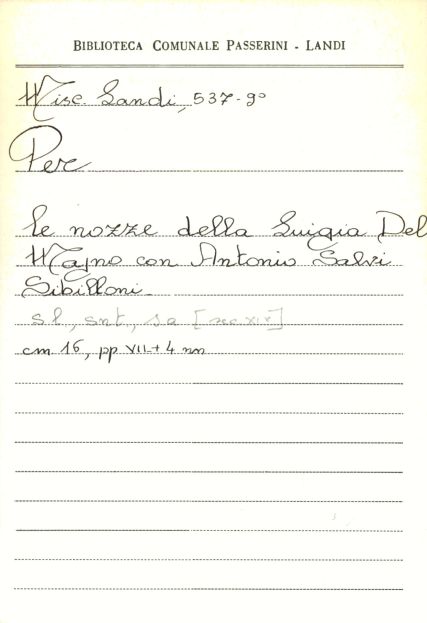 BIBLIOTECA COMUNALE PASSERINI - LANDI
Misc. Landi, 537-9°
Per
le nozze della Luigia Del
Majno con Antonio Salvi
Sibilloni
s.l., snt., sa [sec XIX]
cm. 16, pp VII+4 nn